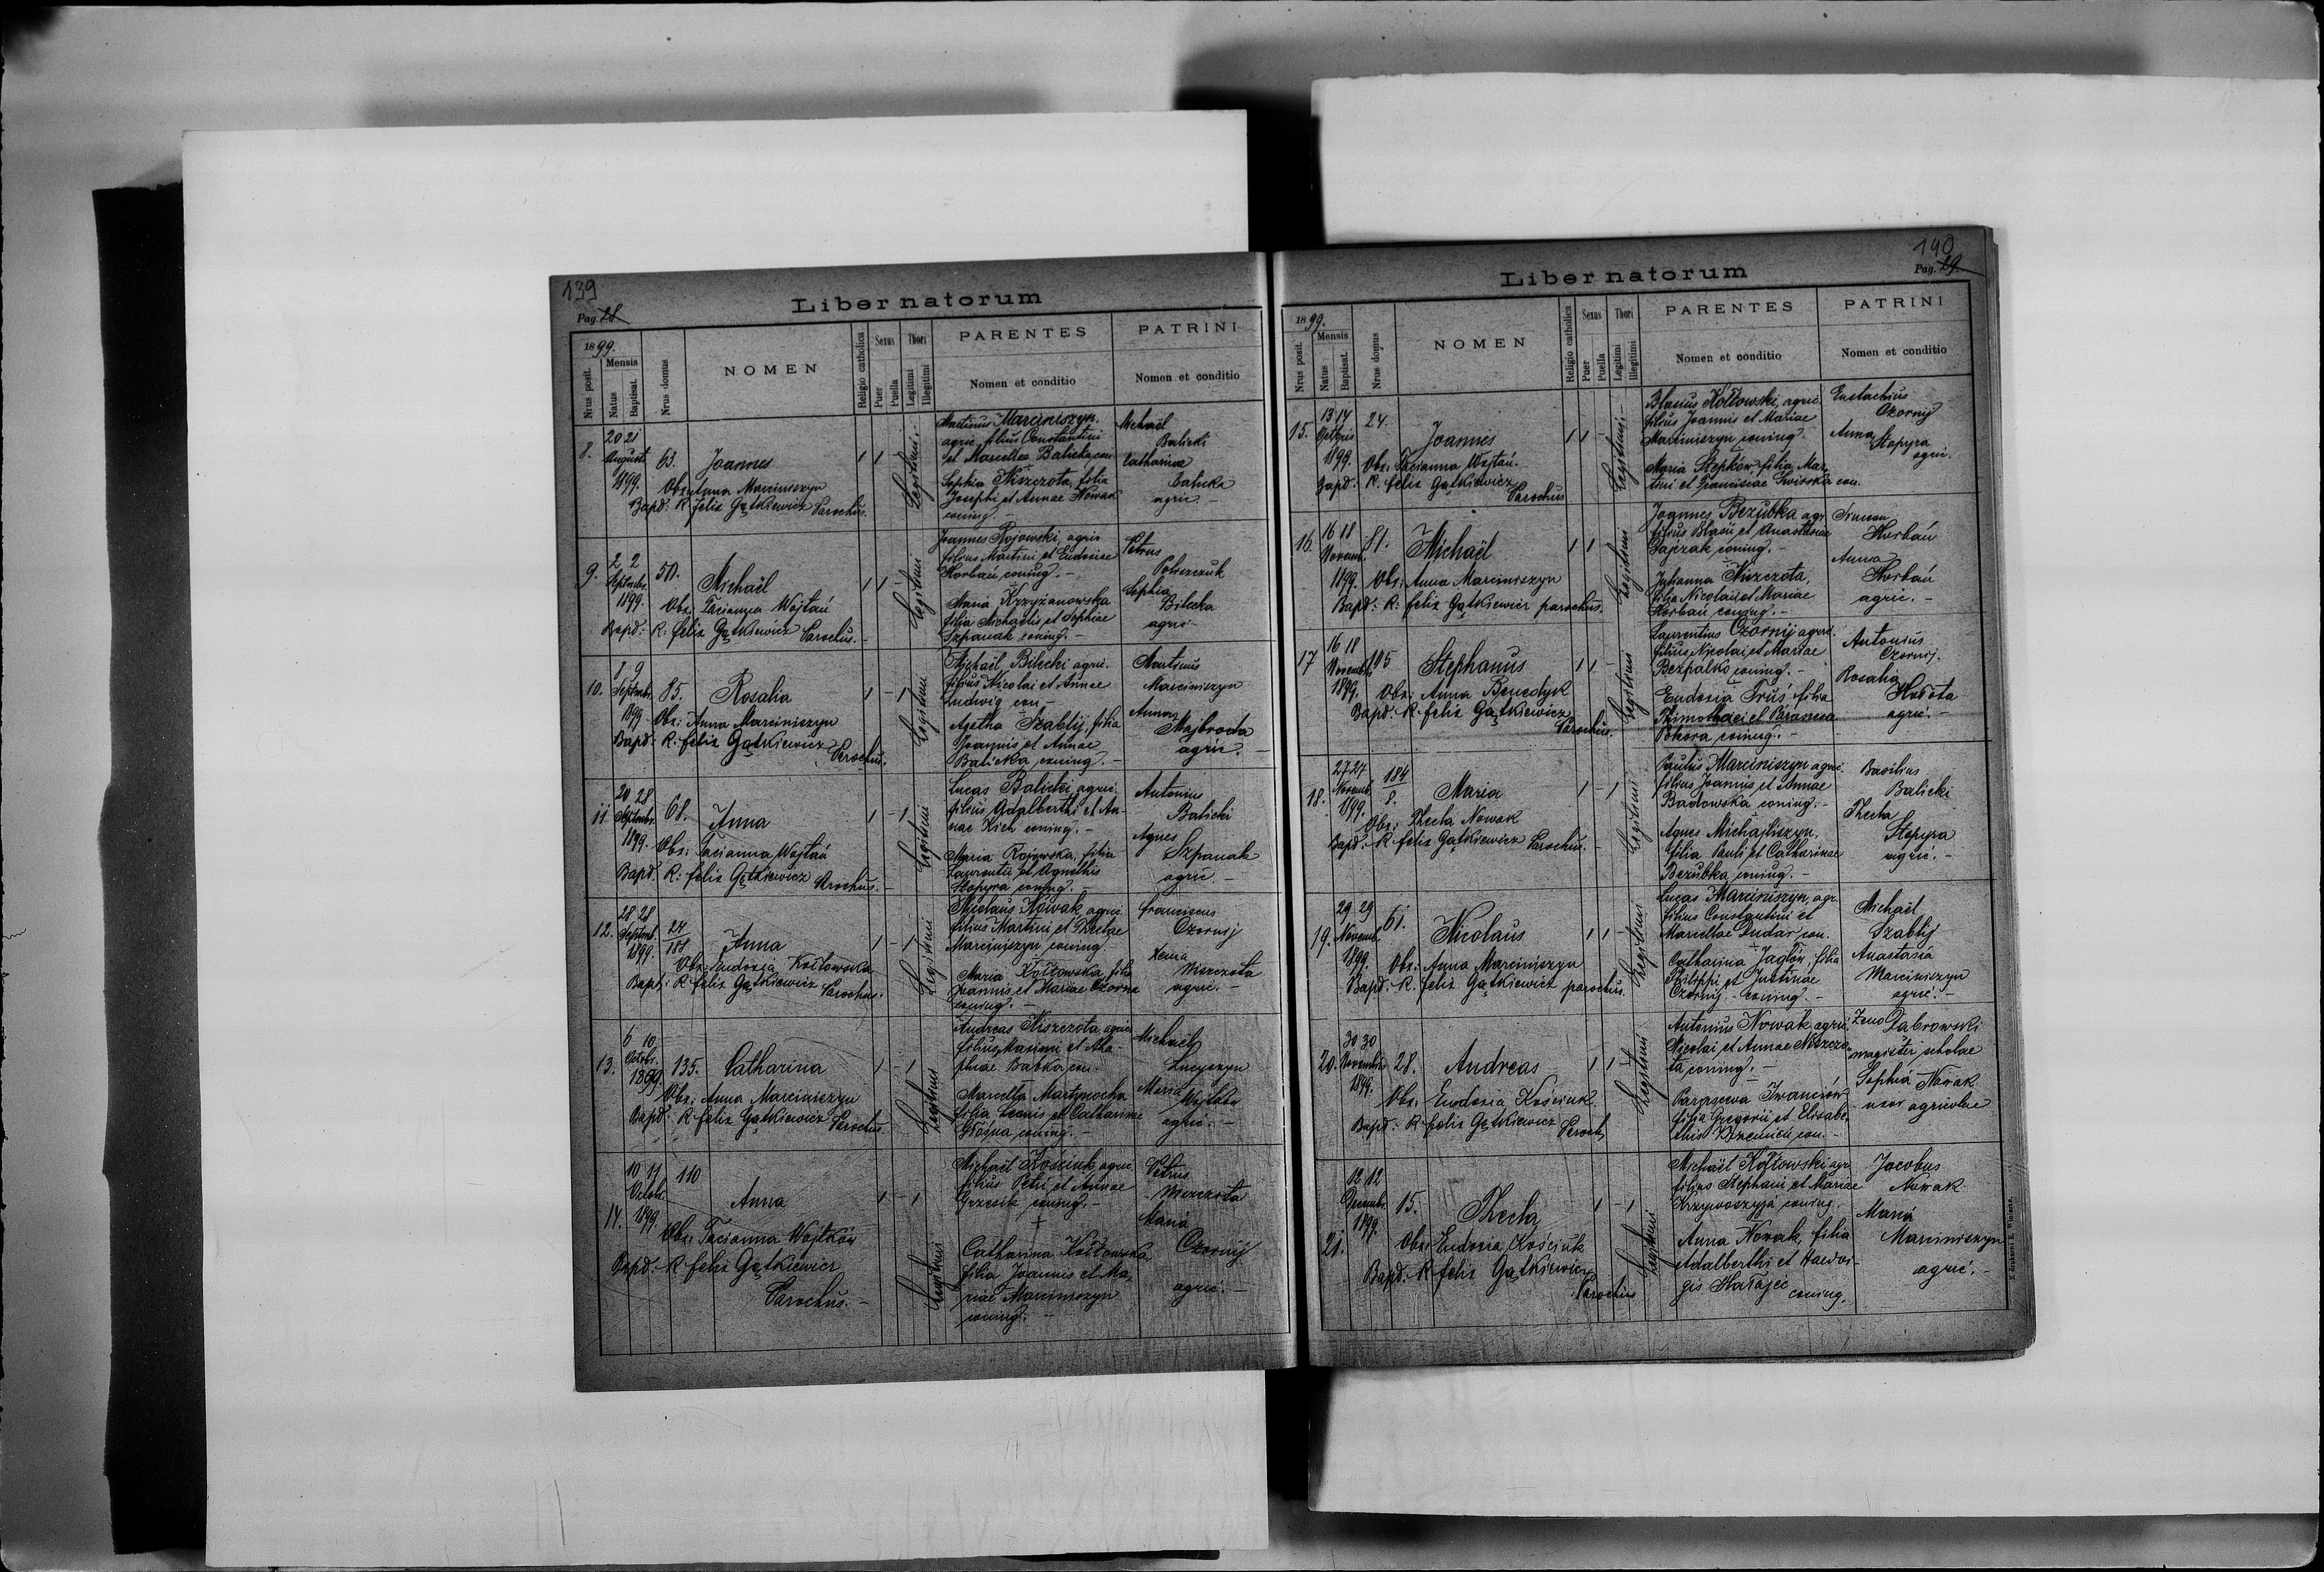 139
Pag. 28
Liber natorum
1899.
Nrus posit.
Mensis
Natus
Baptisat.
Nrus domus
NOMEN
Religio catholica
Sexus
Puer
Puella
Thori
Legitimi
Illegitimi
PARENTES
Nomen et conditio
PATRINI
Nomen et conditio
8.
20 21
Augusti
1899.
63.
Joannes
1 1 -
Legitimi.
Obs. Anna Marciniszyn
Bapd: R. felix Gątkiewicz Parochus.
Martinus Marciniszyn.
agric. filius Constantini
et Marcellae Balicka con
Sophia Niszczota, filia
Josephi et Annae Nowak
coniug. -
Michaël
Balicki
Catharina
Balicka
agric -
9.
2 2
Septembr.
1899.
50.
Michaël
1 1 -
Legitimi
Obs. Tacianna Wojtań
Bapd: R: felix Gątkiewicz Parochus. -
Joannes Rojowski, agric
filius Martini et Eudoxiae
Horbań coniug. -
Maria Krzyżanowska
filia Michaelis et Sophiae
Szpanak coniug. -
Petrus
Poliszczuk
Sophia
Bilecka
agric -
10.
8 9
Septembr.
1899
85.
Rosalia
1 - 1
Legitimi
Obs: Anna Marciniszyn
Bapd: R: felix Gątkiewicz Parochus.
Michaël Bilecki agric.
filius Nicolai et Annae
Ludwig con -
Agatha Szablij, filia
Joannis et Annae
Balicka coniug. -
Martinus
Marciniszyn
Anna
Majbroda
agric. -
11
20 28
Septembr.
1899.
68.
Anna
1 - 1
Legitimi
Obs: Tacianna Wojtań
Bapd. R: felix Gątkiewicz Parochus. -
Lucas Balicki agric.
filius Adalberthi et An-
nae Kich coniug. -
Maria Rojowska, filia
Laurentii et Agnethis
Stopyra coniug. -
Antonius
Balicki
Agnes
Szpanak
agric. -
12.
28 28
Septemb.
1899.
24
188
Anna
1 - 1
Legitimi
Obs: Eudoxia Kołtowska
Bapd: R felix Gątkiewicz Parochus.
Nicolaus Nowak, agric
filius Martini et Theclae
Marciniszyn coniug
Maria Kołtowska, filia
Joannis et Mariae Czorna
coniug. -
Franciscus
Czornij
Xenia
Niszczota
agric. -
13.
6 10
Octobr.
1899.
135.
Catharina
1 - 1
Legitimi
Obs: Anna Marciniszyn
Bapd: R felix Gątkiewicz Parochus.
Andreas Niszczota, agric
filius Maximi et Aga-
thae Babka con
Marcella Martynocha
filia Leonis et Catharinae
coniug. -
Michaël
Maria
Wojtków
agric. -
14.
10 11
Octobr.
1899.
110
Anna
1 - 1
Legitimi
Obs: Tacianna Wojtków
Bapd: R felix Gątkiewicz
Parochus. -
Michaël Kościuk agric.
filius Petri et Annae
Grzesik coniug. -
Catharina Kołtowska
filia Joannis et Ma-
riae Marciniszyn
coniug. -
Petrus
Niszczota
Maria
Czornij
agric. -
140
Pag. 29.
Liber natorum
1899.
Nrus posit.
Mensis
Natus
Baptisat.
Nrus domus
NOMEN
Religio catholica
Sexus
Puer
Puella
Thori
Legitimi
Illegitimi
PARENTES
Nomen et conditio
PATRINI
Nomen et conditio
15.
13 14
Octbris
1899.
24.
Joannes
1 1 -
Legitimi.
Obs: Tacianna Wojtań.
Bapd: R. felix Gątkiewicz Parochus
Blasius Kołtowski, agric
filius Joannis et Mariae
Marciniszyn coniug.
Maria Stepków filia Mar-
tini et Franciscae Swirska con.
Eustachius
Czornij
Anna
Stopyra
agric.
16.
16 18
Novemb.
1899.
81.
Michaël
1 1
Legitimi
Obs: Anna Marciniszyn
Bapd: R: felix Gątkiewicz parochus.
Joannes Bezubka agr
filius Blasii et Anastasiae
Pajczak coniug. -
Julianna Niszczota,
filia Nicolai et Mariae
Horbań coniug. -
Simeon
Horbań
Anna
Horbań
agric. -
17
16 18
Novemb.
1899.
105
Stephanus
1 1 -
Legitimi
Obs: Anna Benedyk
Bapd: R. felix Gątkiewicz Parochus.
Laurentius Czornij agric.
filius Nicolai et Mariae
Bezpalko coniug. -
Eudoxia Truś filia
Thimothaei et
Pokora coniug. -
Antonius
Czornij.
Rosalia
agric. -
18.
27 27
Novemb.
1899.
184
8.
Maria
1 - 1
Legitimi
Obs: Thecla Nowak
Bapd: R felix Gątkiewicz Parochus. -
Paulus Marciniszyn agric.
filius Joannis et Annae
Badowska coniug. -
Agnes Michajliszyn,
filia Pauli et Catharinae
Bezubka coniug. -
Basilius
Balicki
Thecla
Stopyra
agric. -
19.
29 29
Novemb.
1899.
61.
Nicolaus
1 1 -
Legitimi
Obs: Anna Marciniszyn
Bapd: R. felix Gątkiewicz parochus.
Lucas Marciniszyn, agr.
filius Constantini et
Marcellae Dudar con.
Catharina Jagłon, filia
Philippi et Justinae
Czornij. - coniug. -
Michaël
Szablij
Anastasia
Marciniszyn
agric. -
20.
30 30
Novembr.
1899.
28.
Andreas
1 1 -
Legitimi
Obs. Eudoxia Kościuk.
Bapd: R felix Gątkiewicz Paroch
Antonius Nowak agric.
Nicolai et Annae Niszczo-
ta coniug. -
Iwanciów
filia Gregorii et Elisabe-
this con. -
Zeno Dabrowski
magister scholae
Sophia Nowak
uxor agricolae
21.
12 12
Decemb.
1899.
15.
Thecla
1 - 1
Legitimi
Obs: Eudoxia Kościuk
Bapd. R felix Gątkiewicz Parochus
Michaël Kołtowski agr
filius Stephani et Mariae
Krzywoszyja coniug.
Anna Nowak, filia
Adalberthi et Hedwi-
gis Hałajec coniug.
Jacobus
Nowak
Maria
Marciniszyn
agric. -
Z drukarni E. Winiarza.